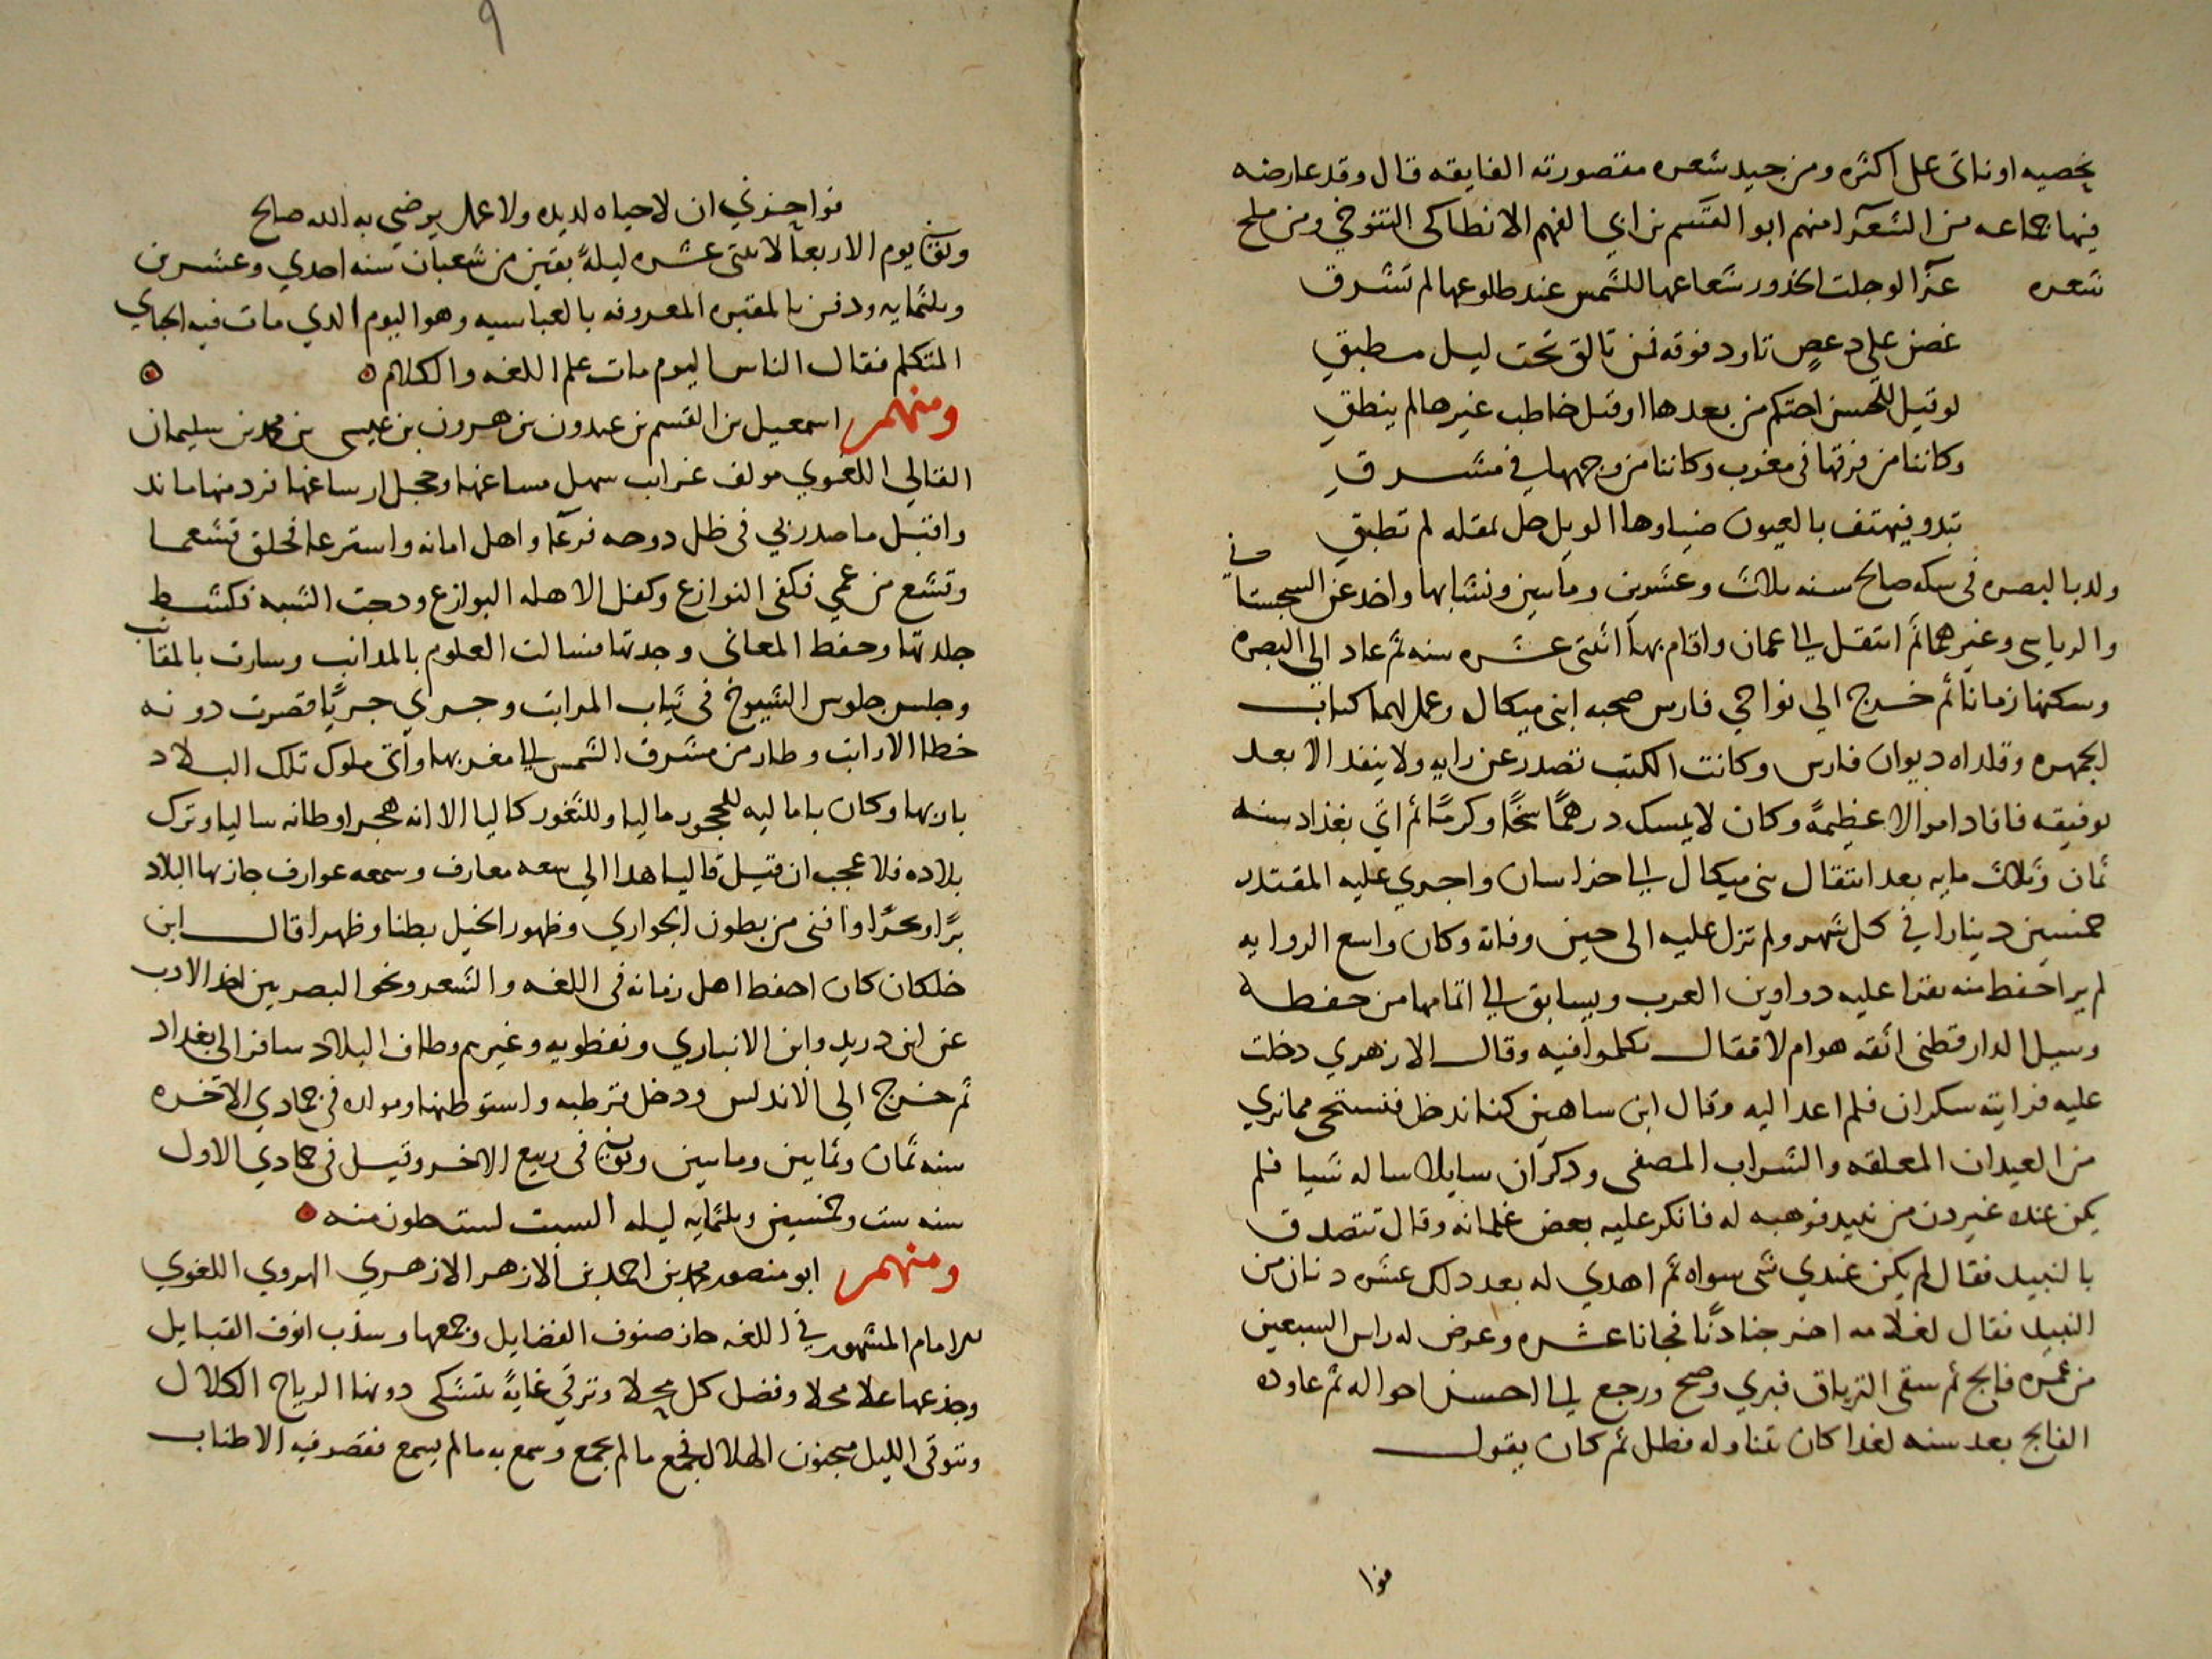 يحصيه او ناتى على اكثره ومن جيد شعره مقصورته الفايقه قال وقد عارضه
فيها جماعه من الشعرآ منهم ابو القسم بن ابي الفهم الانطاكى التنوخي ومن ملح
شعره عزآ لو جلت الخدور شعاعها للشمس عند طلوعها لم تشرق
غصن على دعص تاود فوقه قمر تالق تحت ليل مطبق
لو قيل للحسن احتكم من بعدها او قيل خاطب غيرها لم ينطق
وكاننا من فرقها فى مغرب وكاننا من وجهها في مشرق
تبدو فيهتف بالعيون ضياوها الويل حل بمقله لم تطبق
ولد بالبصره فى سكه صالح سنه ثلاث وعشرين وماتين ونشا بها واخد عن السجستاني
والرياشى وغيرهما ثم انتقل الى عمان واقام بها اثنتى عشره سنه ثم عاد الى البصره
وسكنها زمانا ثم خرج الي نواحي فارس صحبه ابنى ميكال وعمل لهما كتاب
الجمهره وقلداه ديوان فارس وكانت الكتب تصدر عن رايه ولا ينفد الا بعد
توقيعه فافاد اموالا عظيمة وكان لا يمسك درهما سخآ وكرما ثم اتي بغداد سنه
ثمان وثلاث مايه بعد انتقال بنى ميكال الى خراسان واجري عليه المقتدر
خمسين دينارا في كل شهر ولم تزل عليه الى حين وفاته وكان واسع الروايه
لم ير احفط منه يقرا عليه دواوين العرب ويسابق الى اتمامها من حفطه
وسيل الدارقطنى اثقه هو ام لا فقال تكلموا فيه وقال الازهري دخلت
عليه فرايته سكران فلم اعد اليه وقال ابن ساهين كنا ندخل فنستحى مما نري
من العيدان المعلقه والشراب المصفى ودكر ان سايلا ساله شيا فلم
يكن عنده غير دن من نبيد فوهبه له فانكر عليه بعض غلمانه وقال تتصدق
بالنبيد فقال لم يكن عندي شى سواه ثم اهدي له بعد دلك عشره دنان من
النبيد فقال لغلامه اخرجنا دنًا فجانا عشره وعرض له راس السبعين
من عمره فالج ثم سقى الترياق فبري وصح ورجع الى احسن احواله ثم عاوده
الفالج بعد سنه لغدا كان تناوله فطل ثم كان يقول
فوا
٩
فواحزني ان لا حياه لديده ولا عمل يرضى به الله صالح
وتوفي يوم الاربعآ لاثنتى عشره ليلة بقين من شعبان سنه احدي وعشرين
وثلثمايه ودفن بالمقبره المعروفه بالعباسيه وهو اليوم الدي مات فيه الجباي
المتكلم فقال الناس اليوم مات علم اللغه والكلام
ومنهم اسمعيل بن القسم بن عيدون بن هرون بن عيسى بن محمد بن سليمان
القالي اللغوي مولف غراب سهل مساغها وحجل ارساغها فرد منها ما ند
واقتبل ما صدر ربي فى ظل دوحه فرعآ واهل امانه واسترعا فحلق قشعما
وتشع من عمي فكفى النوازع وكفل الاهله البوازع ودجت الشبه فكشط
جلدتها وحفط المعانى وجدتها فسالت العلوم بالمدانب وسارت بالمقانب
وجلس جلوس الشيوخ فى ثياب المراتب وجري جريًا قصرت دونه
خطا الارانب وطار من مشرق الشمس الى مغربها واتى ملوك تلك البلاد
باربها وكان باماليه للحجور ماليا وللثغور كاليا الا انه هجر اوطانه ساليا وترك
بلاده فلا عجب ان قيل قاليا هدا الي سعه معارف وسمعه عوارف جاز بها البلاد
برًا وبحرًا وافنى من بطون الجواري وظهور الخيل بطنا وظهرا قال ابن
خلكان كان احفط اهل زمانه فى اللغه والشعر ونحو البصريين اخد الادب
عن ابن دريد وابن الانباري ونفطويه وغيرهم وطاف البلاد سافر الى بغداد
ثم خرج الي الاندلس ودخل قرطبه واستوطنها ومولده فى جمادي الاخره
سنه ثمان وثمانين وماتين وتوفي فى ربيع الاخر وقيل فى جمادي الاول
سنه ست وخمسين وثلثمايه ليله السبت لست خلون منه
ومنهم ابو منصور محمد بن احمد بن الازهر الازهري الهروي اللغوي
الامام المشهور في اللغه حاز صنوف الفضايل وجمعها وسذب انوف القبايل
وجذعها علا محلا وفضل كل محلا وترقي غاية تتشكى دونها الرياح الكلال
وتتوقى الليل مجنون الهلال فجمع ما لم يجمع وسمع به ما لم يسمع فقصر فيه الاطناب